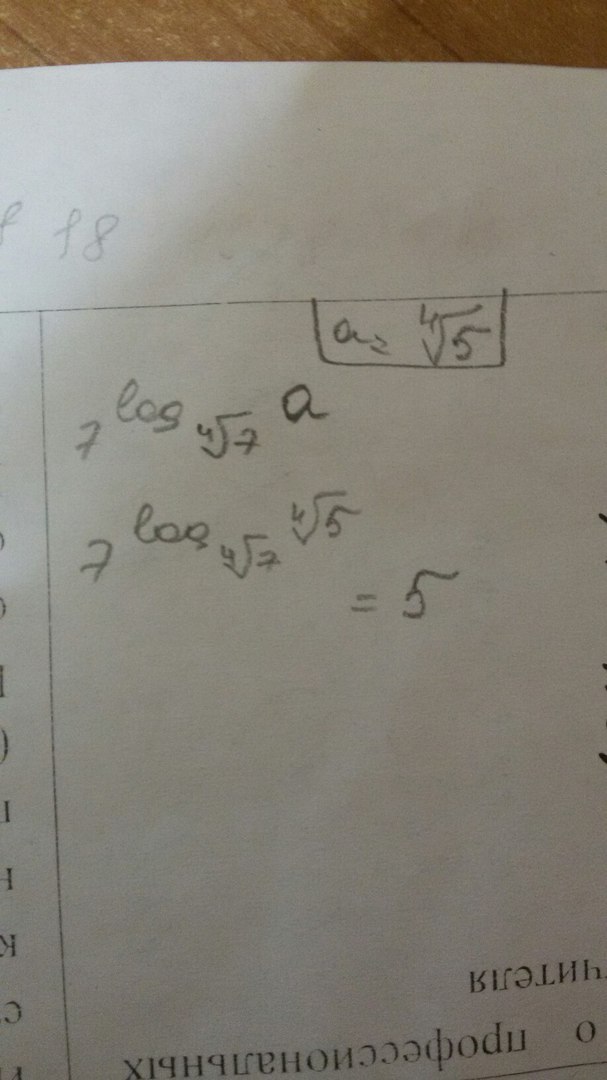 18
a = ∜5
7^log_∜7 a
7^log_∜7 ∜5
= 5
учителя
о профессиональных